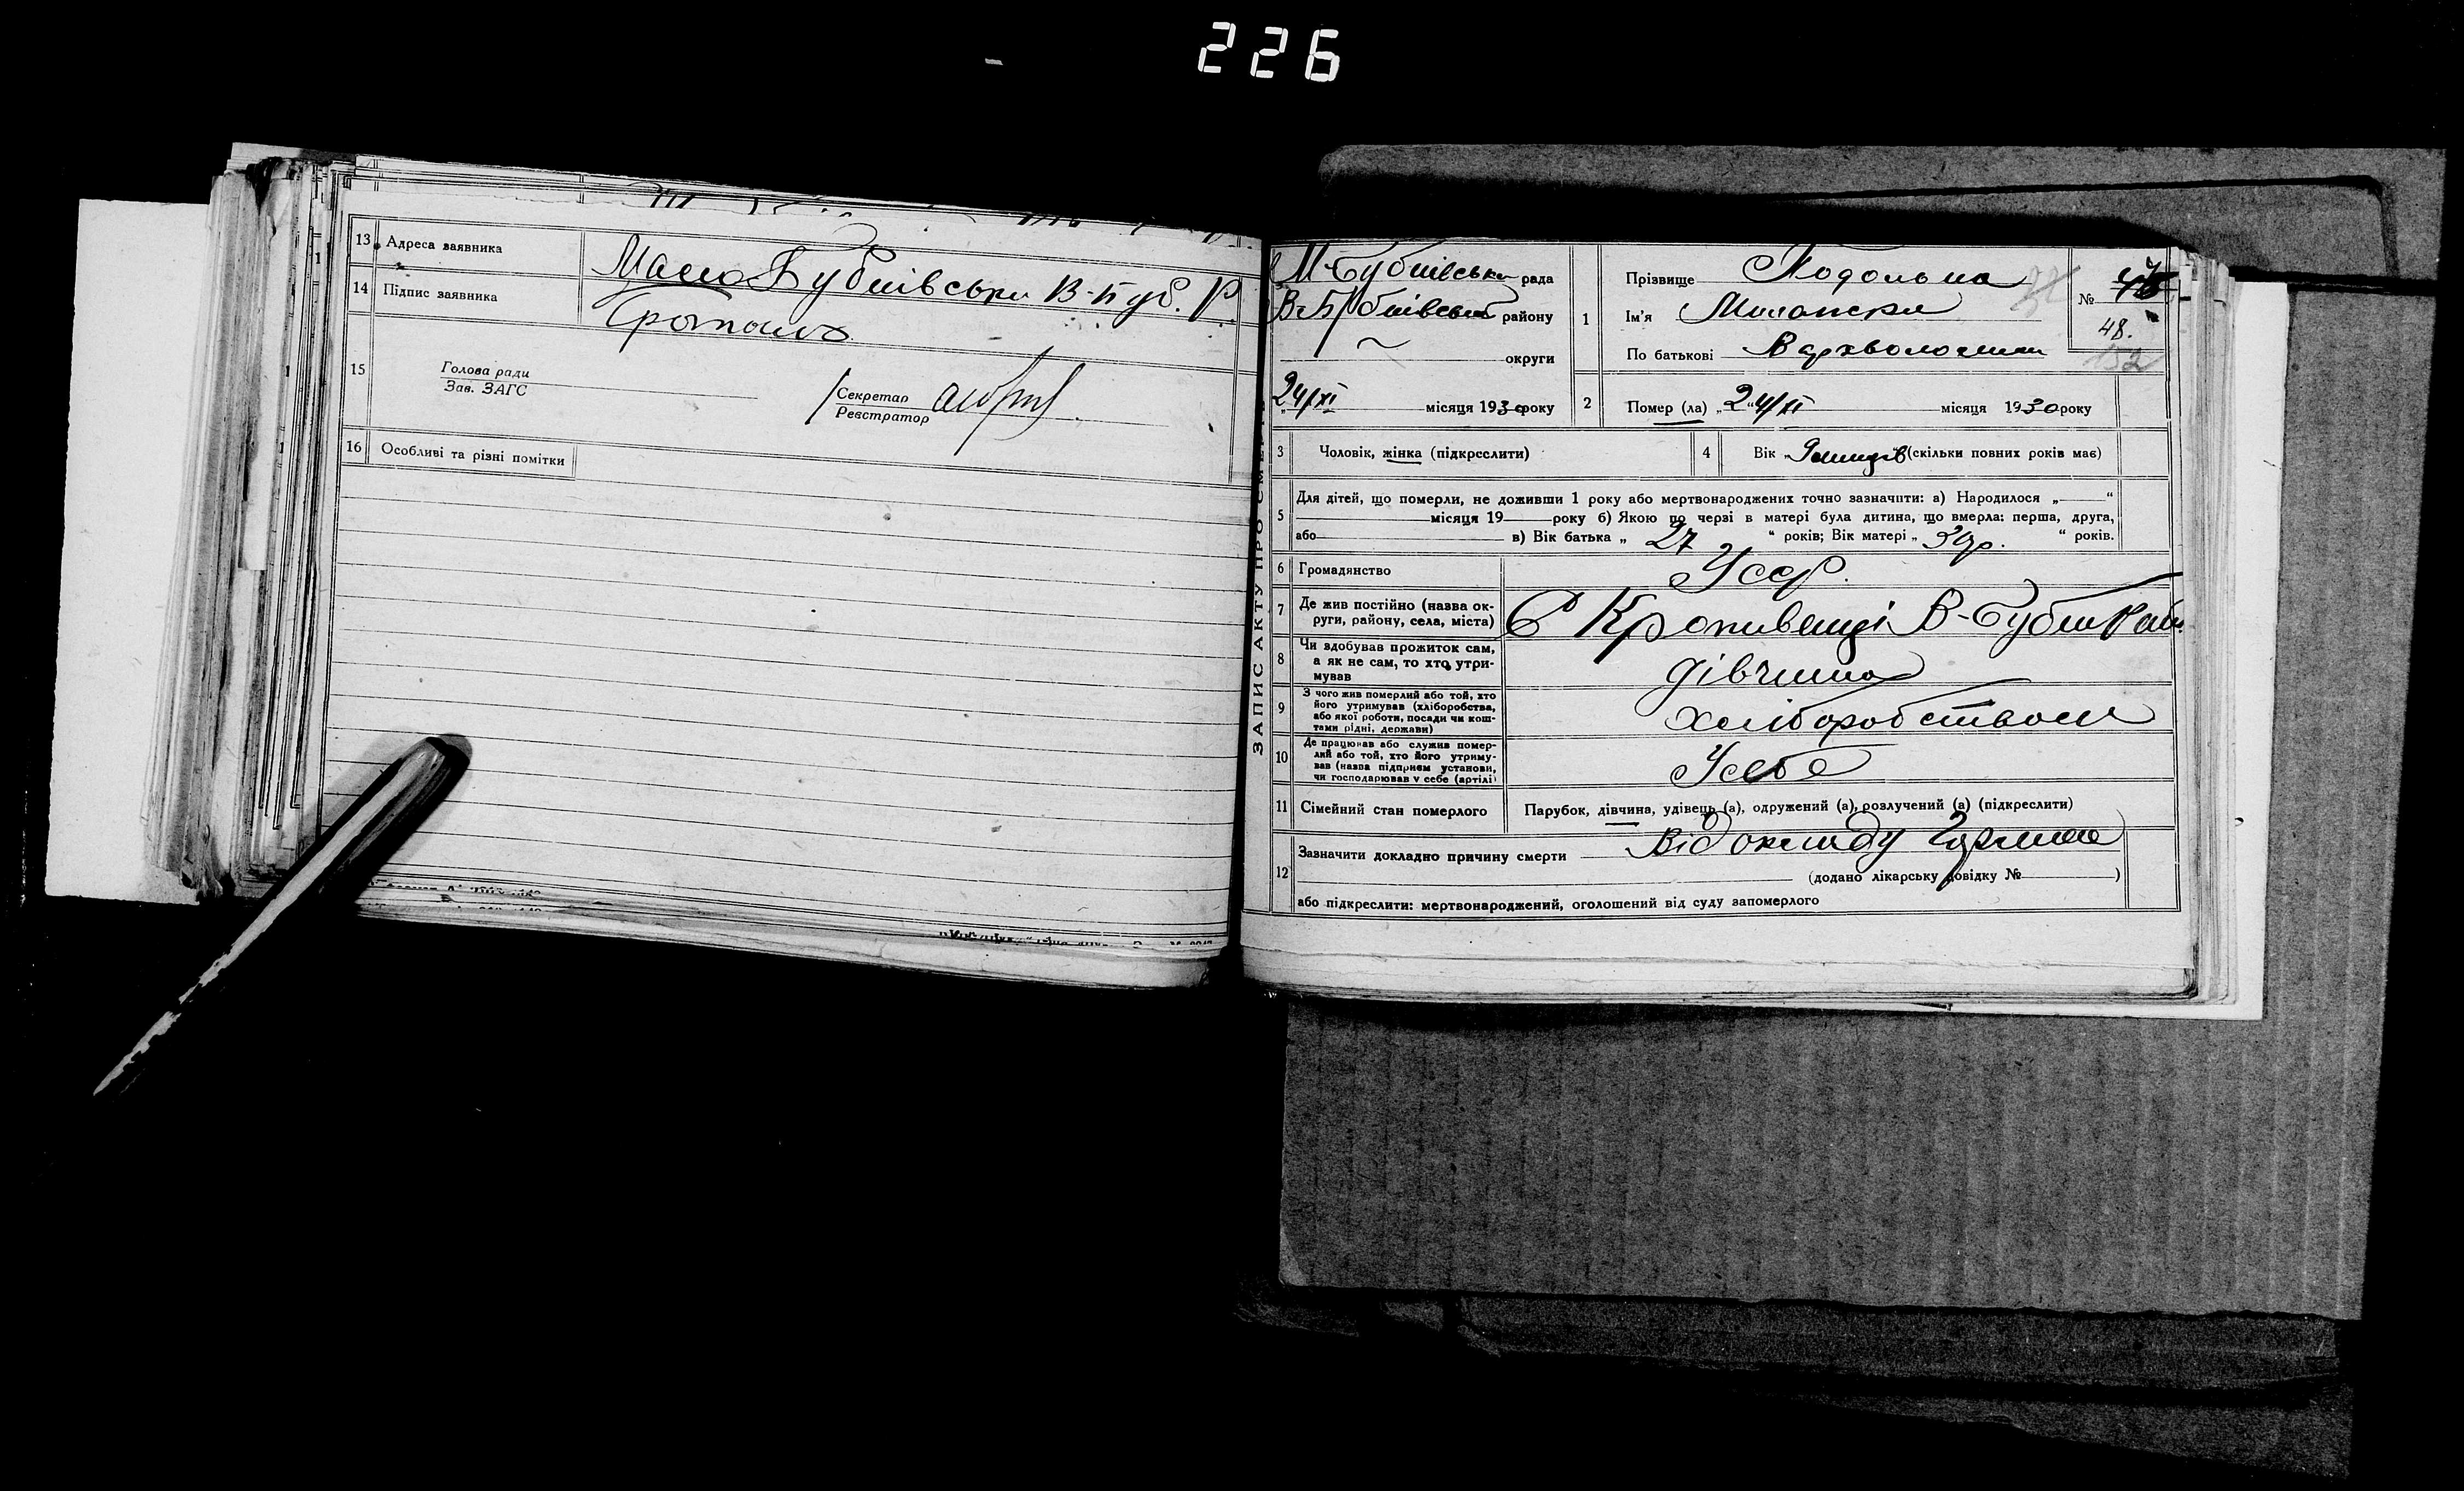 226
13 Адреса заявника Мало Бубнівська В-Буб. Р.
14 Підпис заявника
15 Голова ради
Зав. ЗАГС
Секретар
Реєстратор
16 Особливі та різні помітки
ЗАПИС АКТУ ПРО СМЕРТЬ
М-Бубнівська рада
В-Бубнівський району
округи
24/XI місяця 1930 року
1 Прізвище Подольна
Ім'я Миланка
По батькові
№
48.
132
2 Помер (ла) „24/XI місяця 1930 року
3 Чоловік, жінка (підкреслити)
4 Вік (скільки повних років має)
5 Для дітей, що померли, не доживши 1 року або мертвонароджених точно зазначити: а) Народилося „ “
місяця 19 року б) Якою по черзі в матері була дитина, що вмерла: перша, друга,
або в) Вік батька „ 27 “ років; Вік матері „ 30р. “ років.
6 Громадянство Усср.
7 Де жив постійно (назва ок-
руги, району, села, міста) С Кропивенці В-Бубн Рай.
8 Чи здобував прожиток сам,
а як не сам, то хто утри-
мував дівчина
9 З чого жив померлий або той, хто
його утримував (хліборобства,
або якої роботи, посади чи кош-
тами рідні, держави) хліборобством
10 Де працював або служив помер-
лий або той, хто його утриму-
вав (назва підприєм установи,
чи господарював у себе (артілі) Усебе
11 Сімейний стан померлого Парубок, дівчина, удівець (а), одружений (а), розлучений (а) (підкреслити)
12 Зазначити докладно причину смерти Від
(додано лікарську довідку № )
або підкреслити: мертвонароджений, оголошений від суду запомерлого